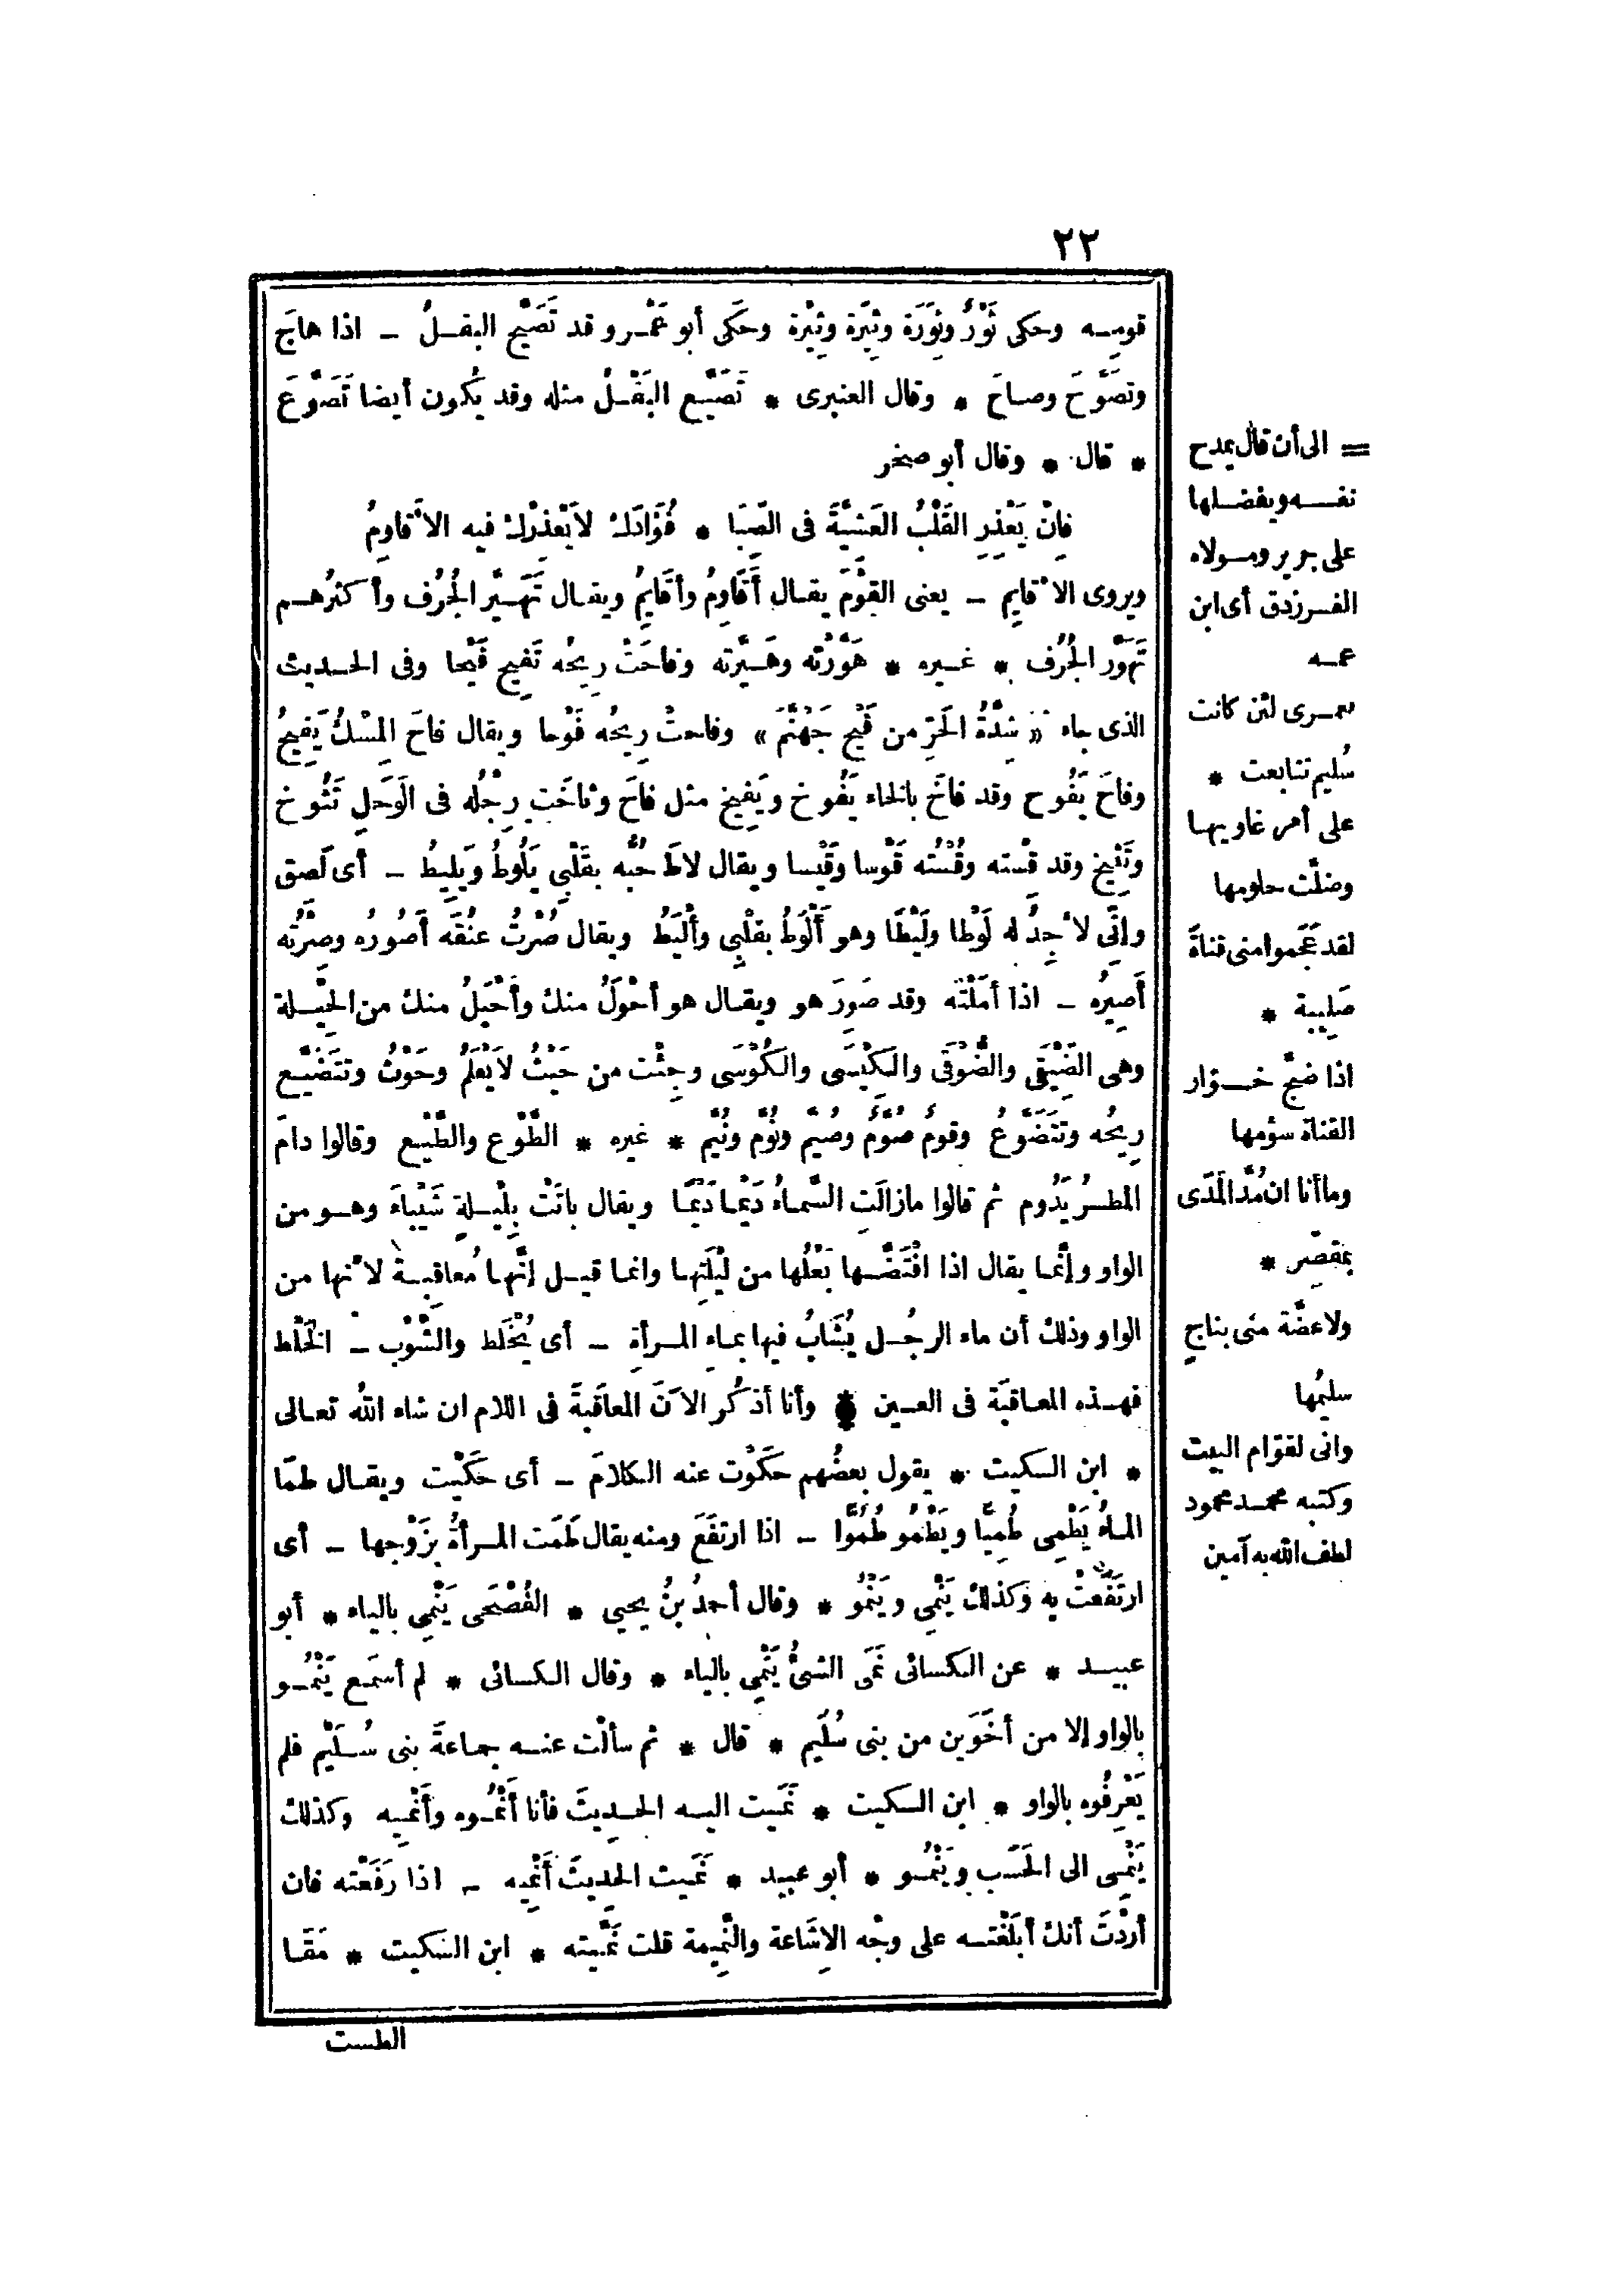 ٢٢
قومِـه وحكى ثَوْرٌ وثِوَرَة وثِيَرَة وثِيْرة وحَكَى أبو عَمْـرو قد تَصَيَّح البقـلُ ـ اذا هاجَ
وتصَوَّحَ وصاحَ * وقال العنبرى * تَصَيَّـع البَقْـلُ مثله وقد يكُون أيضا تَصَوَّعَ
* قال * وقال أبو صخر
فإنْ يَعْذِرِ القَلْبُ العَشِيَّةَ فى الصِّبَا * فُؤَادَكَ لا يَعْذِرْكَ فيه الأَقاوِمُ
ويروى الأَقايِم ـ يعنى القَوْمَ يقـال أَقَاوِمُ وأقَايِمُ ويقـال تَهَـيَّر الجُرُف وأكثرُهـم
تَهَوَّر الجُرُف * غـيره * هَوَّرْته وهَـيَّرته وفاحَتْ رِيحُه تَفِيح فَيْحا وفى الحـديث
الذى جاء «شِدَّةُ الحَرِّ من فَيْحِ جَهَنَّمَ» وفاحتْ رِيحُه فَوْحا ويقال فاحَ المِسْكُ يَفِيحُ
وفاحَ يَفُوح وقد فاخَ بالخاء يَفُوخ ويَفِيخ مثل فاحَ وثاخَتِ رِجْلُه فى الوَحَلِ تَثُوخ
وتَثِيخ وقد قِسْته وقُسْتُه قَوْسا وقَيْسا ويقال لاطَ حُبُّه بِقَلْبِي يَلُوطُ ويَلِيطُ ـ أى لَصِق
وإنِّى لأَجِدُ له لَوْطا ولَيْطًا وهو أَلْوَطُ بقلْبِى وأَلْيَطُ ويقال صُرْتُ عنُقَه أَصُورُه وصِرْتُه
أَصِيرُه ـ اذا أمَلْتَه وقد صَوِرَ هو ويقـال هو أحْوَلُ منك وأَحْيَلُ منك من الحِيـلة
وهى الضِّيقَى والضُّوقَى والكِيسَى والكُوسَى وجِئْت من حَيْثُ لا يَعْلَمُ وحَوْثُ وتتَضَيَّـع
رِيحُه وتتَضَوَّعُ وقومٌ صُوَّمٌ وصُيَّم ونُوَّم ونُيَّم * غيره * الطَّوْع والطَّيْـع وقالوا دامَ
المطـرُ يَدُوم ثم قالوا مازالَتِ السَّماءُ دَيْمًا دَيْمًا ويقال باتَتْ بِلَيْـلةِ شَيْباءَ وهـو من
الواو وإنَّما يقال اذا افْتَضَّـها بَعْلُها من لَيْلَتِها وانما قيـل إنَّها مُعاقبـة لأنها من
الواو وذلك أن ماء الرجُـل يُشَابُ فيها بمـاءِ المـرأةِ ـ أى يُخْلَط والشَّوْب ـ الخَلْط
فهـذه المعـاقبَة فى العـين * وأنا أذكُر الآنَ المعاقَبةَ فى اللام ان شاء اللهُ تعـالى
* ابن السكيت * يقول بعضُهم حكَوْت عنه الكلامَ ـ أى حكَيْت ويقـال طمَا
المـاءُ يَطْمِى طُمِيًّا ويَطْمُو طُمُوًّا ـ اذا ارتفَعَ ومنه يقال طَمَت المـرأةُ بزَوْجِها ـ أى
ارتَفَعتْ به وكذلك يَنْمِى ويَنْمُو * وقال أحمدُ بنُ يحيى * الفُصْحَى يَنْمِى بالياء * أبو
عبيـد * عن الكسائى نَمَى الشىءُ يَنْمِى بالياء * وقال الكسائى * لم أسمَع يَنْمُـو
بالواو إلا من أخَوَين من بنى سُلَيم * قال * ثم سألْت عنـه جماعةَ بنى سُـلَيْم فلم
يَعْرِفُوه بالواو * ابن السكيت * نَمَيت اليـه الحـديثَ فأنا أَنْمُـوه وأَنْمِيـه وكذلك
يَنْمِـى الى الحَسَب ويَنْمُـو * أبو عبيد * نَمَيت الحديثَ أَنْمِيه ـ اذا رَفَعْته فان
أردْتَ أنك أبلَغْتـه على وجْه الإشَاعة والنَّمِيمة قلت نَمَّيته * ابن السكيت * مَقَـا
الطست
= الى أن قال يمدح
نفـسه ويفضـلها
على جرير ومـولاه
الفـرزدق أى ابن
عمـه
لعمـرى لئن كانت
سُليم تتابعت *
على أمر غاويها
وضلَّت حلومها
لقد عَجَموا منى قناةً
صَلِيبة *
اذا ضجَّ خـوّار
القناة سؤمها
وما أنا ان مُدَّ المَدَى
بمقصِّر *
ولا عضَّة منى بناجٍ
سليمُها
وانى لقوّام البيت
وكتبه محمـد محمود
لطف الله به آمين